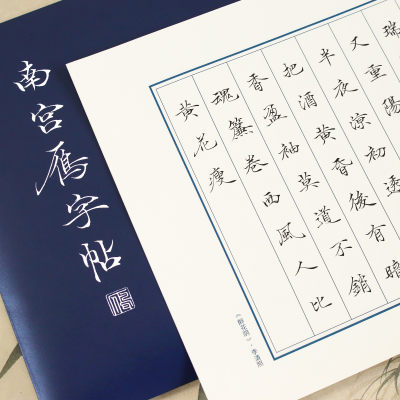 南宫雁字帖
瑞
又重陽
半夜涼初透
把酒黃昏後有暗
香盈袖莫道不銷
魂簾卷西風人比
黃花瘦
《醉花阴》·李清照